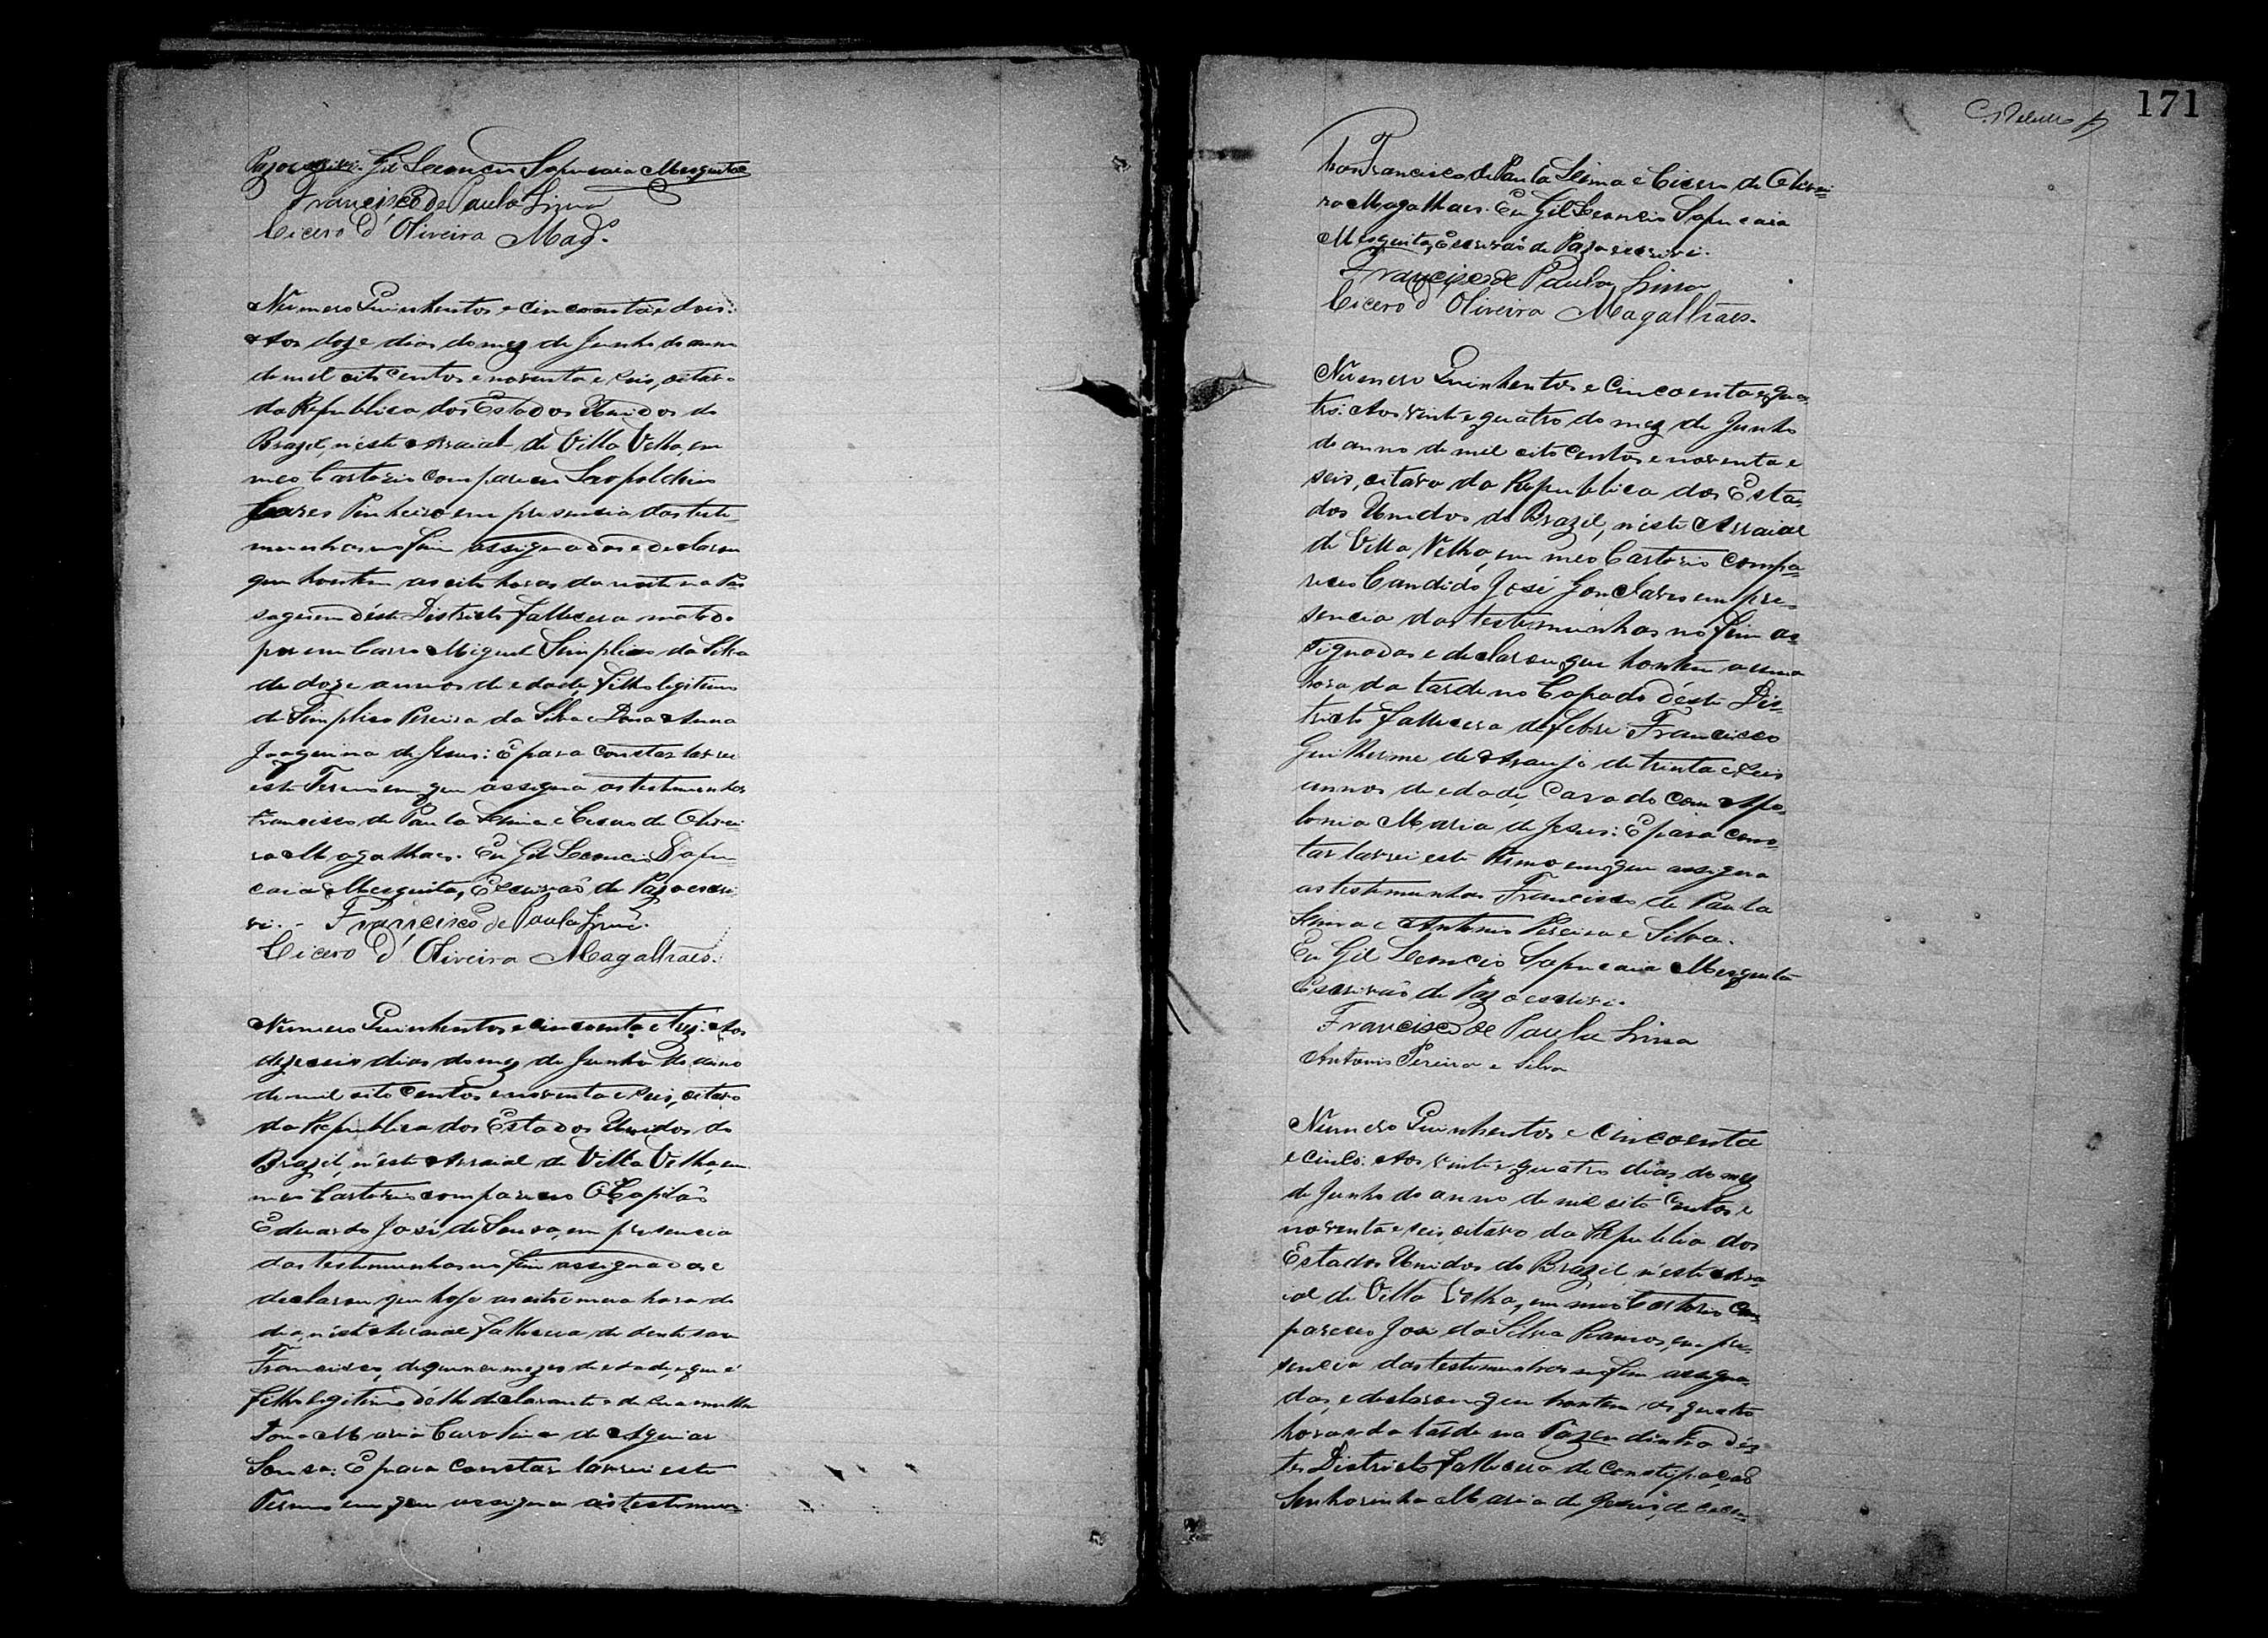 Paz o escrivi. Gil Leoncio Sapucaia Mesquita
Francisco de Paula Lima
Cicero d'Oliveira Mag.º
Numero Quinhentos e cincoenta e dois:
Aos doze dias do mez de Junho do anno
de mil oito centos e noventa e seis, oitavo
da Republica dos Estados Unidos do
Brazil, n'este Arraial de Villa Velha, em
meo Cartorio compareceo Leopoldino
Soares Pinheiro em presencia das teste-
munhas no fim assignadas e declarou
que hontem as oito horas da noite na Pas-
sagem d'este Districto fallecera matado
por um Carro Miguel Simplicio da Silva
de doze annos de edade, filho legitimo
de Simplicio Pereira da Silva e Dona Anna
Joaquina de Jesus: E para constar lavrei
este Termo em que assigna as testemunhas
Francisco de Paula Lima e Cicero de Olivei-
ra Magalhaes. Eu Gil Leoncio Sapu-
caia Mesquita, Escrivaõ de Paz o escri-
vi. - Francisco de Paula Lima.
Cicero d'Oliveira Magalhães.
Numero Quinhentos e cincoenta e trez: Aos
dezeseis dias do mez de Junho do anno
de mil oito centos e noventa e seis, oitavo
da Republica dos Estados Unidos do
Brazil, n'este Arraial de Villa Velha, em
meo Cartorio compareceo O Capitão
Eduardo José de Souza, em presencia
das testemunhas no fim assignadas e
declarou que hoje as oito e meia hora do
dia, n'este Arraial fallecera de dentisaõ
Francisco, de quinze mezes de edade, que é
filho legitimo d'elle declarante e de sua mulher
Dona Maria Carolina de Aguiar
Souza: E para constar lavrei este
Termo em que assigna as testemu-
171
nhas Francisco de Paula Lima e Cicero de Olivei-
ra Magalhaes. Eu Gil Leoncio Sapucaia
Mesquita, Escrivaõ de Paz o escrivi.
Francisco de Paula Lima
Cicero d'Oliveira Magalhães.
Numero Quinhentos e Cincoenta e qua-
tro: Aos vinte e quatro do mez de Junho
do anno de mil oito centos e noventa e
seis, oitavo da Republica dos Esta-
dos Unidos do Brazil, n'este Arraial
de Villa Velha, em meo Cartorio compa-
receo Candido José Gonçalves em pre-
sencia das testemunhas no fim as-
signadas e declarou que hontem a uma
hora da tarde no Capado d'este Dis-
tricto fallecera de febre Francisco
Guilherme de Araujo de trinta e seis
annos de edade, Casado com Apo-
lonia Maria de Jesus: E para cons-
tar lavrei este termo em que assigna
as testemunhas Francisco de Paula
Lima e Antonio Pereira e Silva.
Eu Gil Leoncio Sapucaia Mesquita
Escrivaõ de Paz o escrivi.
Francisco de Paula Lima
Antonio Pereira e Silva
Numero Quinhentos e cincoenta
e cinco: Aos vinte e quatro dias do mez
de Junho do anno de mil oito centos e
noventa e seis, oitavo da Republica dos
Estados Unidos do Brazil n'este Arra-
ial de Villa Velha, em meo Cartorio com-
pareceo José da Silva Ramos, em pre-
sencia das testemunhas no fim assigna-
das, e declarou que hontem as quatro
horas da tarde na Fazendinha d'es-
te Districto fallecera de Constipação
Senhorinha Maria de Jesus, de